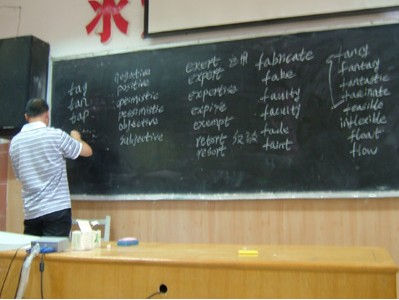 tag
tan
tap
negative
positive
objective
subjective
exert 运用
export
expertise
expire
exempt
retort
resort
fabricate
fake
faulty
faculty
fade
faint
fancy
fantasy
fantastic
fascinate
feasible
inflexible
float
flow